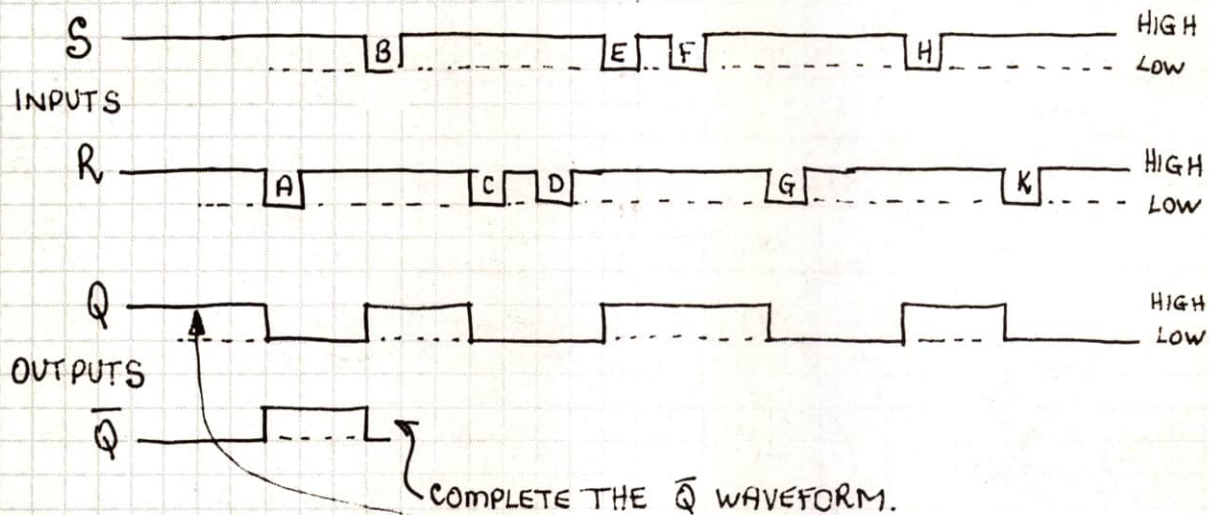 S B E F H HIGH
LOW
INPUTS
R A C D G K HIGH
LOW
Q HIGH
LOW
OUTPUTS
Q̅
COMPLETE THE Q̅ WAVEFORM.